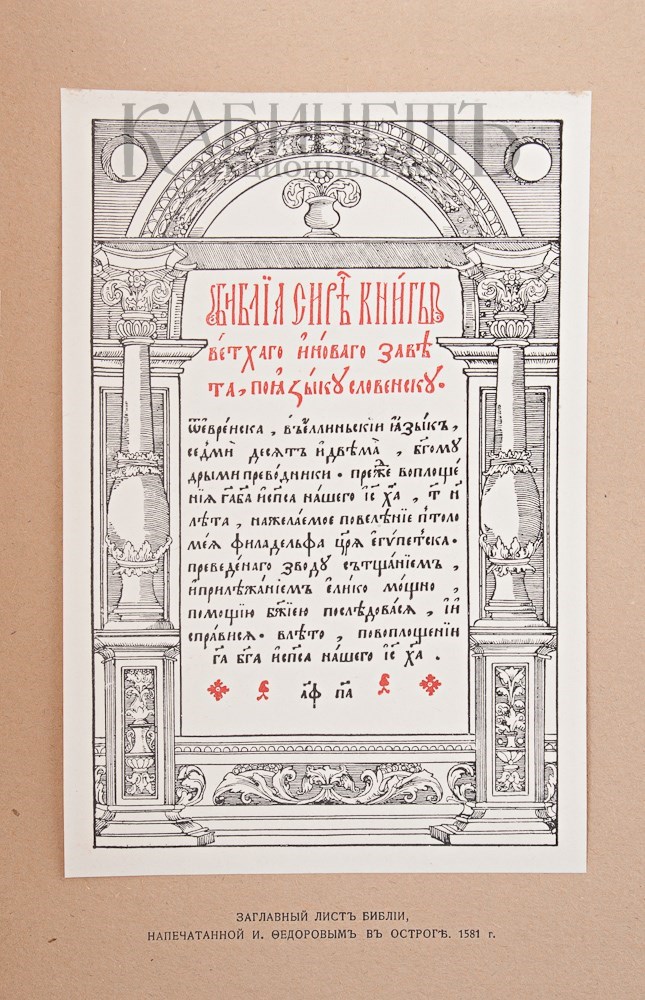 КАБИНЕТЪ
АУКЦИОННЫЙ ДОМ
Библїа сирѣ́ч книгы
ве́тхаго и҆но́ваго завѣ́
та, поꙗ҆зы́ку словенску.
ѿевре́нска, въе́ллиньскїи ꙗ҆зы́къ,
седмь десятъ и҆двѣма̀, бг҃ому
дрыми прево́дники. пре́жⷣе воплоще́
нїѧ га҃ бг҃а и҆ сп҃са на́шего і҆с҃ ха҃, т҃ и҃
лѣта, нажелаемое повелѣнїе пⷮоло
ме́ѧ филадельфа цр҃ѧ є҆гѵ́петска.
преведе́наго зводу сътщанїемъ,
и҆прилѣжа́нїемъ є҆ли́ко мощно,
помощїю бж҃їею послѣ́довасѧ, і҆ и҆
спра́висѧ. влѣто, повоплощенїи
га҃ бг҃а и҆ сп҃са на́шего і҆с҃ ха҃.
҂аф҃ па҃
ЗАГЛАВНЫЙ ЛИСТЪ БИБЛІИ,
НАПЕЧАТАННОЙ И. ѲЕДОРОВЫМЪ ВЪ ОСТРОГѢ. 1581 г.